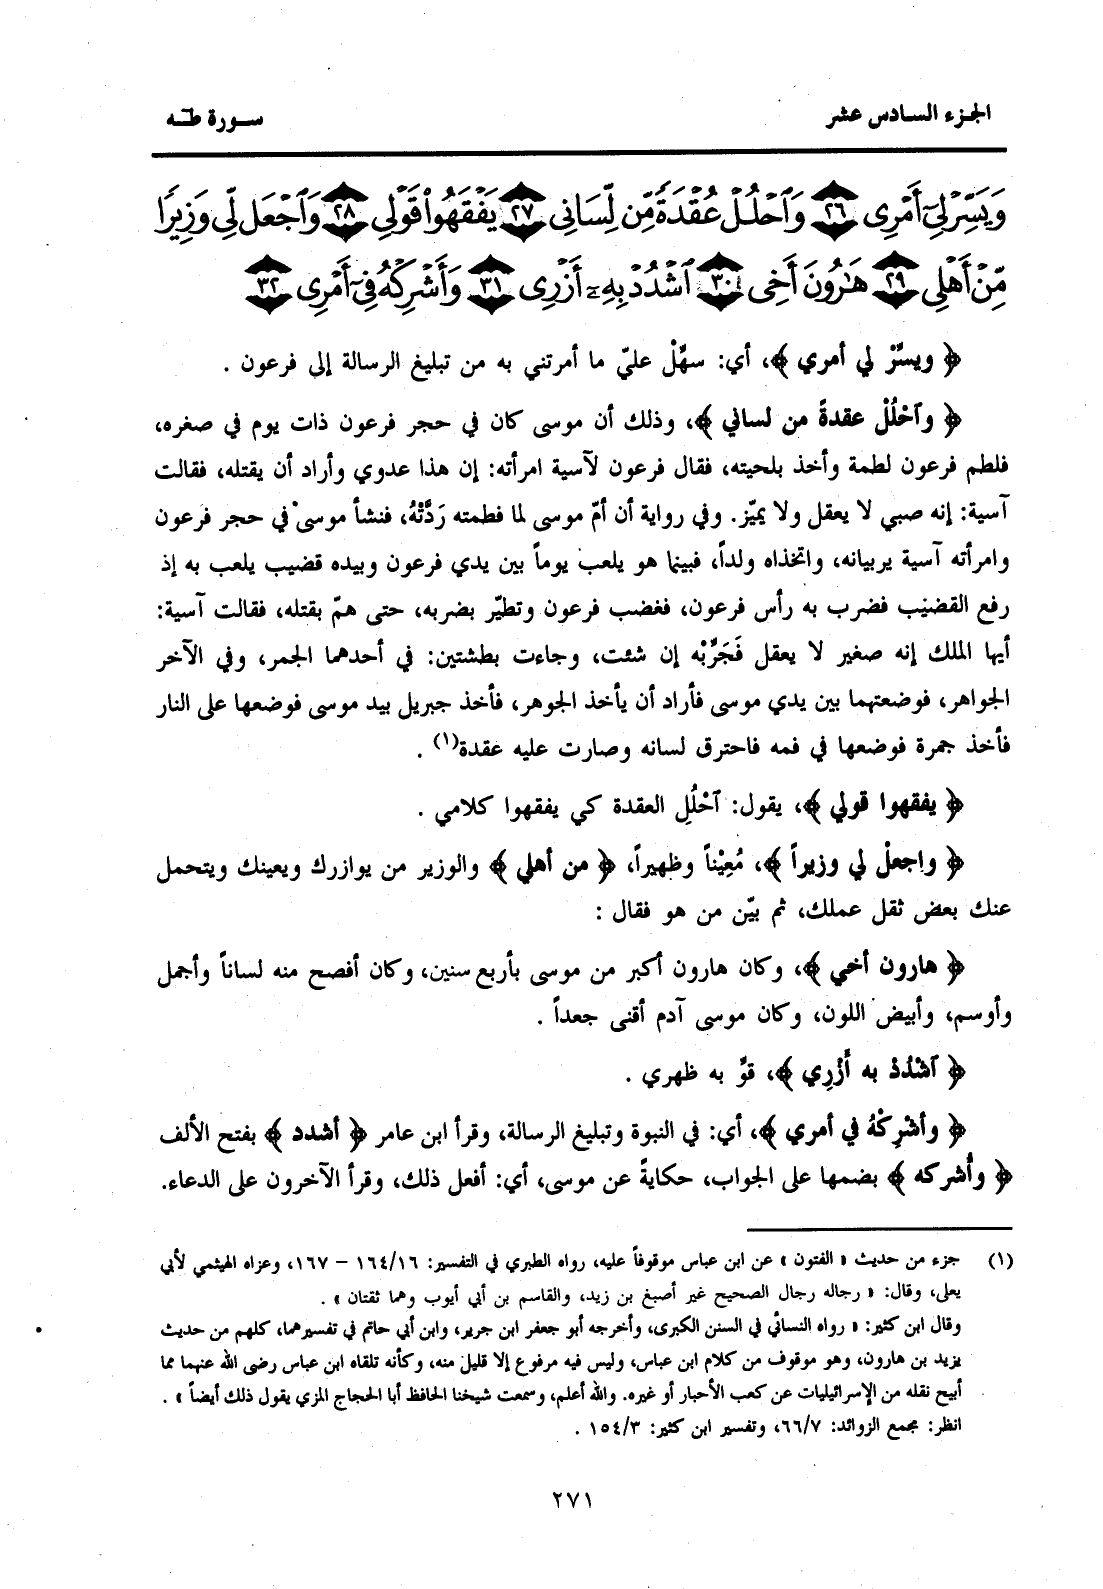 الجزء السادس عشر
سورة طه
وَيَسِّرْ لِيٓ أَمْرِى ﴿٢٦﴾ وَٱحْلُلْ عُقْدَةً مِّن لِّسَانِى ﴿٢٧﴾ يَفْقَهُوا۟ قَوْلِى ﴿٢٨﴾ وَٱجْعَل لِّى وَزِيرًا
مِّنْ أَهْلِى ﴿٢٩﴾ هَٰرُونَ أَخِى ﴿٣٠﴾ ٱشْدُدْ بِهِۦٓ أَزْرِى ﴿٣١﴾ وَأَشْرِكْهُ فِىٓ أَمْرِى ﴿٣٢﴾
﴿ ويسِّرْ لي أمري ﴾، أي: سهِّلْ عليّ ما أمرتني به من تبليغ الرسالة إلى فرعون .
﴿ وٱحْلُلْ عقدةً من لساني ﴾، وذلك أن موسى كان في حجر فرعون ذات يوم في صغره،
فلطم فرعون لطمة وأخذ بلحيته، فقال فرعون لآسية امرأته: إن هذا عدوي وأراد أن يقتله، فقالت
آسية: إنه صبي لا يعقل ولا يميّز. وفي رواية أن أمّ موسى لما فطمته رَدَّتْهُ، فنشأ موسى في حجر فرعون
وامرأته آسية يربيانه، واتخذاه ولداً، فبينما هو يلعب يوماً بين يدي فرعون وبيده قضيب يلعب به إذ
رفع القضيب فضرب به رأس فرعون، فغضب فرعون وتطيّر بضربه، حتى همّ بقتله، فقالت آسية:
أيها الملك إنه صغير لا يعقل فَجَرِّبْه إن شئت، وجاءت بطشتين: في أحدهما الجمر، وفي الآخر
الجواهر، فوضعتهما بين يدي موسى فأراد أن يأخذ الجوهر، فأخذ جبريل بيد موسى فوضعها على النار
فأخذ جمرة فوضعها في فمه فاحترق لسانه وصارت عليه عقدة(١) .
﴿ يفقهوا قولي ﴾، يقول: ٱحْلُلِ العقدة كي يفقهوا كلامي .
﴿ واجعلْ لي وزيراً ﴾، مُعِيْناً وظهيراً، ﴿ من أهلي ﴾ والوزير من يوازرك ويعينك ويتحمل
عنك بعض ثقل عملك، ثم بيّن من هو فقال :
﴿ هارون أخي ﴾، وكان هارون أكبر من موسى بأربع سنين، وكان أفصح منه لساناً وأجمل
وأوسم، وأبيض اللون، وكان موسى آدم أقنى جعداً .
﴿ ٱشْدُدْ به أَزْرِي ﴾، قوِّ به ظهري .
﴿ وأشْرِكْهُ في أمري ﴾، أي: في النبوة وتبليغ الرسالة، وقرأ ابن عامر ﴿ أشدد ﴾ بفتح الألف
﴿ وأُشركه ﴾ بضمها على الجواب، حكايةً عن موسى، أي: أفعل ذلك، وقرأ الآخرون على الدعاء.
(١) جزء من حديث « الفتون » عن ابن عباس موقوفاً عليه، رواه الطبري في التفسير: ١٦٤/١٦ – ١٦٧، وعزاه الهيثمي لأبي
يعلى، وقال: « رجاله رجال الصحيح غير أصبغ بن زيد، والقاسم بن أبي أيوب وهما ثقتان » .
وقال ابن كثير: « رواه النسائي في السنن الكبرى، وأخرجه أبو جعفر ابن جرير، وابن أبي حاتم في تفسيرهما، كلهم من حديث
يزيد بن هارون، وهو موقوف من كلام ابن عباس، وليس فيه مرفوع إلا قليل منه، وكأنه تلقاه ابن عباس رضى الله عنهما مما
أبيح نقله من الإسرائيليات عن كعب الأحبار أو غيره. والله أعلم، وسمعت شيخنا الحافظ أبا الحجاج المزي يقول ذلك أيضاً » .
انظر: مجمع الزوائد: ٦٦/٧، وتفسير ابن كثير: ١٥٤/٣ .
٢٧١